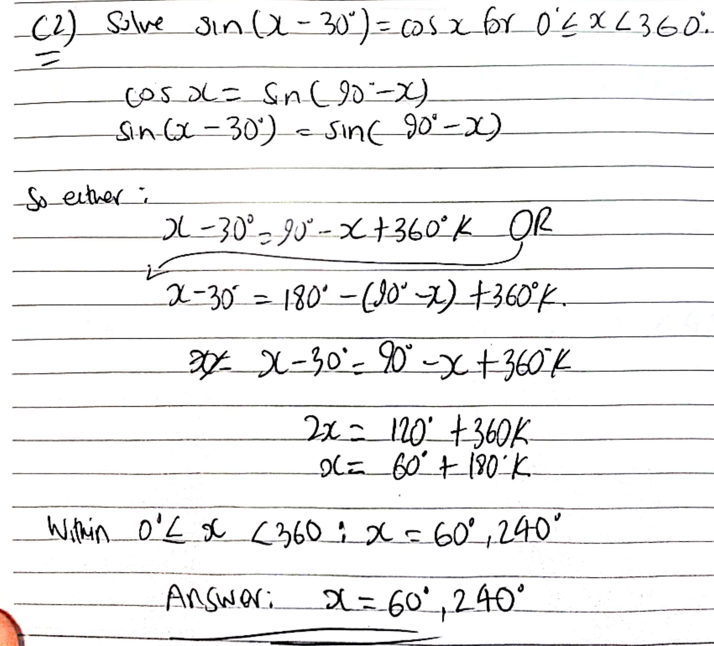 C2) Solve sin(x - 30°) = cos x for 0° ≤ x < 360°.
cos x = sin(90° - x)
sin(x - 30°) = sin(90° - x)
So either:
x - 30° = 90° - x + 360°K OR
x - 30° = 180° - (90° - x) + 360°K.
x - 30° = 90° - x + 360°K
2x = 120° + 360K
x = 60° + 180°K
Within 0° ≤ x < 360 : x = 60°, 240°
Answer: x = 60°, 240°